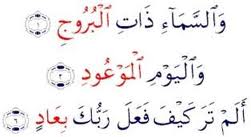 وَالسَّمَاءِ ذَاتِ الْبُرُوجِ ﴿١﴾
وَالْيَوْمِ الْمَوْعُودِ ﴿٢﴾
أَلَمْ تَرَ كَيْفَ فَعَلَ رَبُّكَ بِعَادٍ ﴿٦﴾